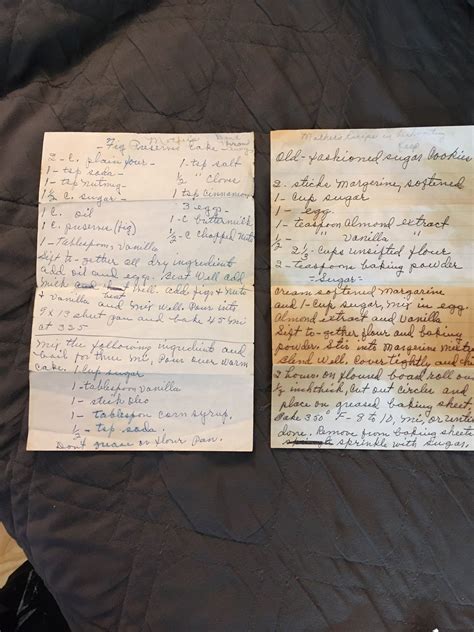 Mothers
Fig Preserve Cake
2 - C. plain flour - 1 tsp salt
1 - tsp soda - ½ " Clove
1 - tsp nutmeg - 1 tsp cinnamon
1½ C. sugar - 3 eggs -
1 C. oil 1 - C buttermilk
1 C. preserve (fig) ½ - C chopped nuts
1 - Tablespoon Vanilla
Sift to-gether all dry ingredient
add oil and eggs. Beat Well add
milk and Well. add figs & nuts
& vanilla and mix Well. Pour into
9 x 13 sheet pan and bake 45 min
at 325
Mix the following ingredient and
boil for three min, Pour over warm
cake. 1 Cup sugar
1 - tablespoon vanilla
1 - stick oleo
1 - tablespoon corn syrup.
½ - tsp soda.
Dont grease or flour Pan.
Mothers
Old-fashioned sugar Cookies
2 sticks Margerine, softened
1 - cup sugar
1 - egg
1 - teaspoon Almond extract
½ - " Vanilla "
2⅓ - cups unsifted flour
2 - teaspoons baking powder
- Sugar -
Cream softened Margarine
and 1 - Cup sugar, mix in egg
Almond extract and Vanilla
Sift to-gether flour and baking
powder. Stir into Margerine
Blend Well. Cover tightly and
2 hours. on floured board roll out
¼ inch thick, Cut out circles and
place on greased baking sheet
Bake 350° F - 8 to 10, min, or until
done. Remove from baking sheets
sprinkle with sugar.